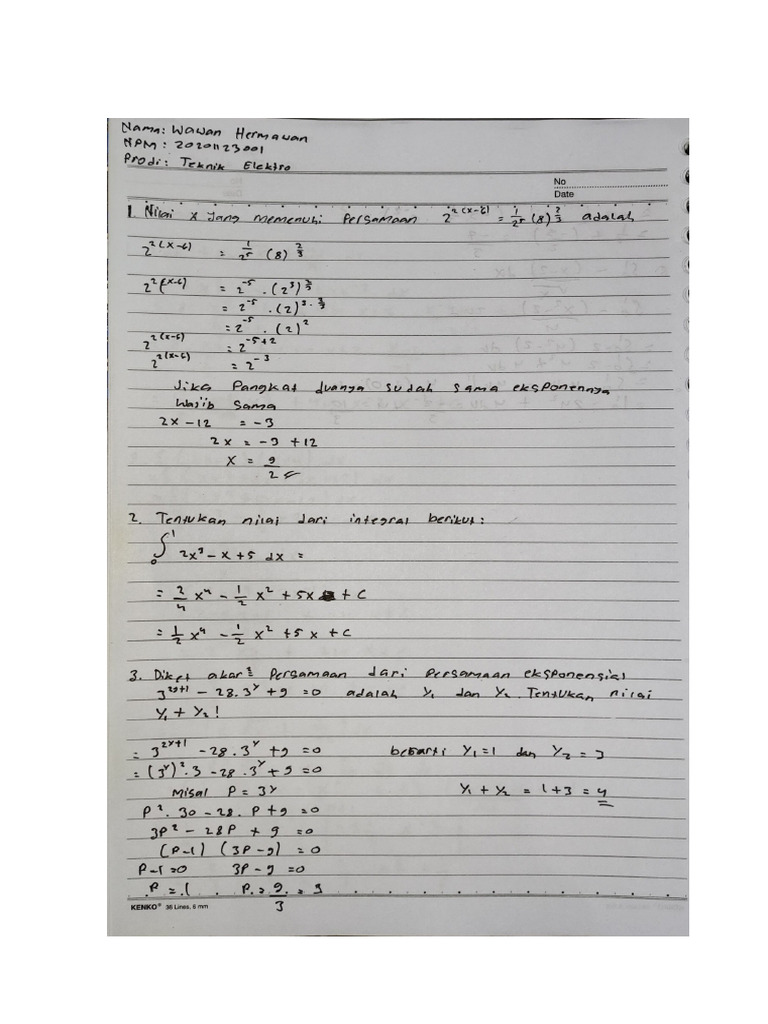 Nama: Wawan Hermawan
NPM: 20201123001
Prodi: Teknik Elektro
No
Date
1. Nilai x yang memenuhi Persamaan 2^2(x-6) = 1/2^5 (8)^2/3 adalah
2^2(x-6) = 1/2^5 (8)^2/3
2^2(x-6) = 2^-5 . (2^3)^2/3
= 2^-5 . (2)^3 . 2/3
= 2^-5 . (2)^2
2^2(x-6) = 2^-5+2
2^2(x-6) = 2^-3
Jika Pangkat duanya sudah sama eksponennya
Wajib sama
2x - 12 = -3
2x = -3 + 12
x = 9/2
2. Tentukan nilai dari integral berikut:
∫₀¹ 2x³ - x + 5 dx =
= 2/4 x⁴ - 1/2 x² + 5x + C
= 1/2 x⁴ - 1/2 x² + 5x + C
3. Diket akar² Persamaan dari Persamaan eksponensial
3^2y+1 - 28.3^y + 9 = 0 adalah y₁ dan y₂. Tentukan nilai
y₁ + y₂!
= 3^2y+1 - 28.3^y + 9 = 0 berarti y₁ = 1 dan y₂ = 3
= (3^y)² . 3 - 28 . 3^y + 9 = 0
Misal P = 3^y y₁ + y₂ = 1 + 3 = 4
P² . 30 - 28 . P + 9 = 0
3P² - 28P + 9 = 0
(P-1) (3P-9) = 0
P-1 = 0 3P - 9 = 0
P = 1 P = 9/3 = 3
KENKO® 36 Lines, 6 mm